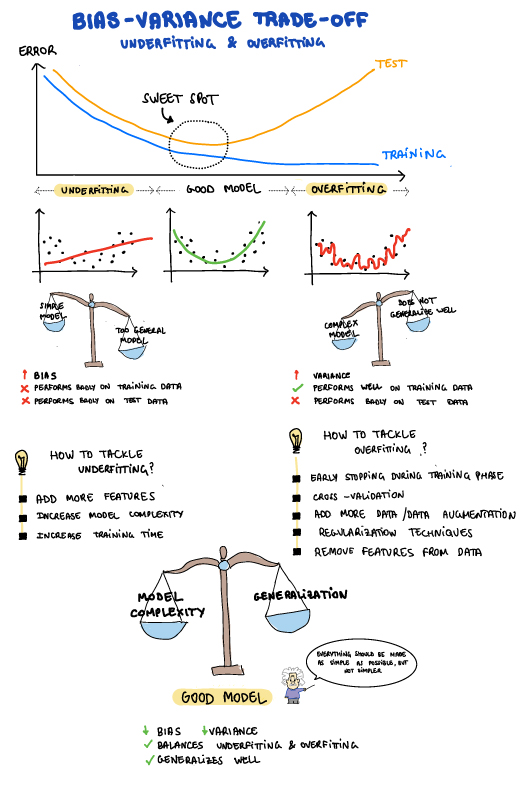 BIAS-VARIANCE TRADE-OFF
UNDERFITTING & OVERFITTING
ERROR
TEST
SWEET SPOT
TRAINING
UNDERFITTING
GOOD MODEL
OVERFITTING
SIMPLE
MODEL
TOO GENERAL
MODEL
COMPLEX
MODEL
DOES NOT
GENERALIZE WELL
↑ BIAS
✗ PERFORMS BADLY ON TRAINING DATA
✗ PERFORMS BADLY ON TEST DATA
↑ VARIANCE
✓ PERFORMS WELL ON TRAINING DATA
✗ PERFORMS BADLY ON TEST DATA
HOW TO TACKLE
UNDERFITTING?
ADD MORE FEATURES
INCREASE MODEL COMPLEXITY
INCREASE TRAINING TIME
HOW TO TACKLE
OVERFITTING ?
EARLY STOPPING DURING TRAINING PHASE
CROSS-VALIDATION
ADD MORE DATA/DATA AUGMENTATION
REGULARIZATION TECHNIQUES
REMOVE FEATURES FROM DATA
MODEL
COMPLEXITY
GENERALIZATION
EVERYTHING SHOULD BE MADE
AS SIMPLE AS POSSIBLE, BUT
NOT SIMPLER
GOOD MODEL
↓ BIAS ↓ VARIANCE
✓ BALANCES UNDERFITTING & OVERFITING
✓ GENERALIZES WELL